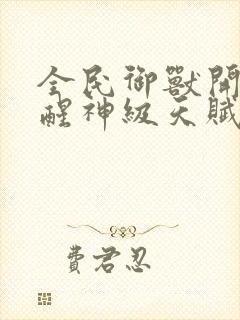 全民御獸開
醒神級天賦
費君忍